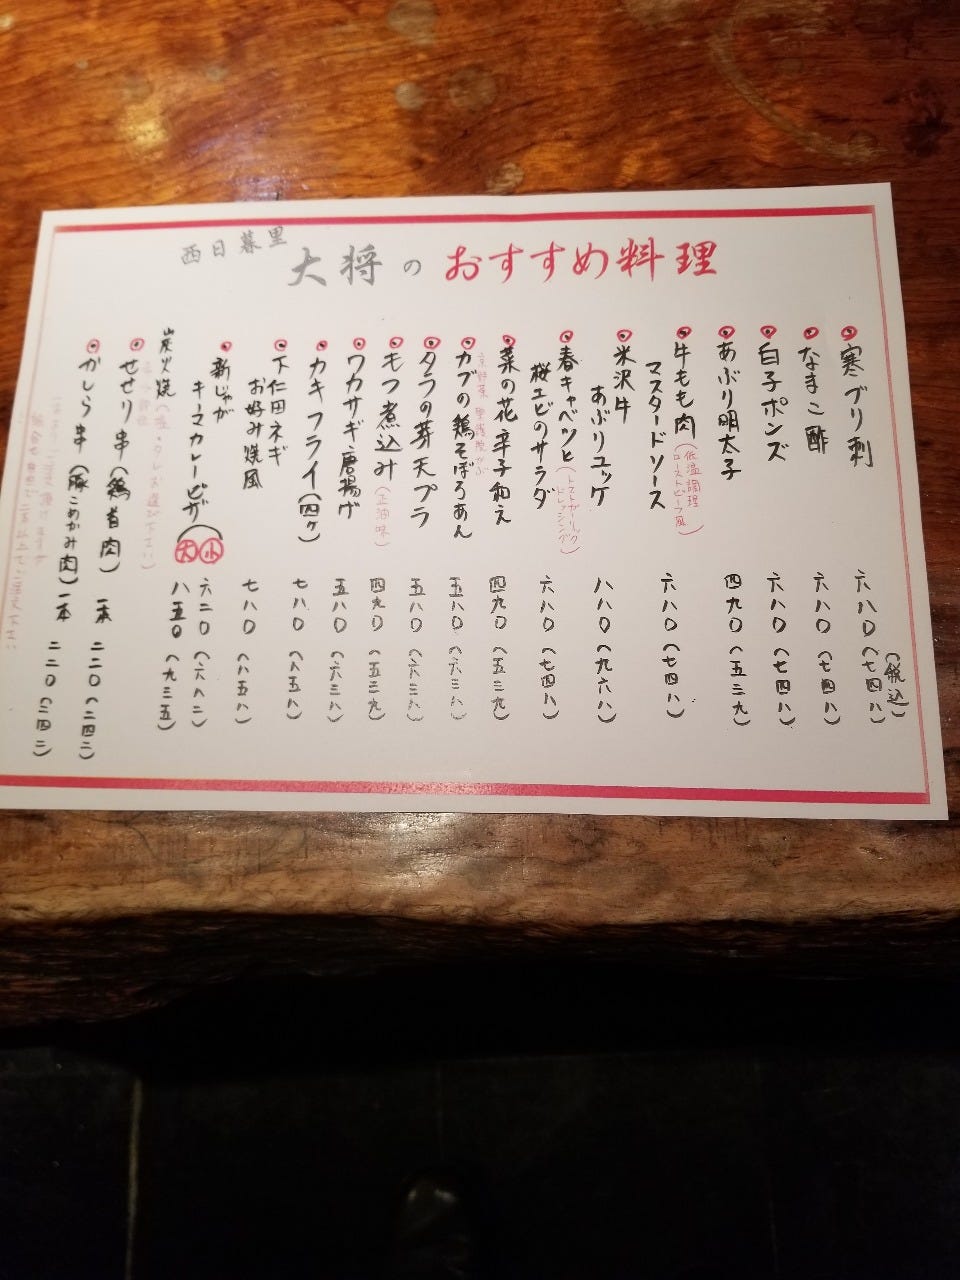 西日暮里
大将のおすすめ料理
(税込)
寒ブリ刺 六八〇(七四八)
なまこ酢 六八〇(七四八)
白子ポンズ 六八〇(七四八)
あぶり明太子 四九〇(五三九)
牛もも肉(低温調理
ローストビーフ風)
マスタードソース 六八〇(七四八)
米沢牛
あぶりユッケ 八八〇(九六八)
春キャベツと
桜エビのサラダ(トマトガーリック
ドレッシング) 六八〇(七四八)
菜の花辛子和え 四九〇(五三九)
京野菜 聖護院かぶ
カブの鶏そぼろあん 五八〇(六三八)
タラの芽天プラ 五八〇(六三八)
もつ煮込み(正油味) 四九〇(五三九)
ワカサギ唐揚げ 五八〇(六三八)
カキフライ(四ケ) 七八〇(八五八)
下仁田ネギ
お好み焼風 七八〇(八五八)
新じゃが
キーマカレーピザ
小 六二〇(六八二)
大 八五〇(九三五)
炭火焼(塩・タレお選び下さい)
せせり串(鶏首肉) 一本 二二〇(二四二)
かしら串(豚こめかみ肉) 一本 二二〇(二四二)